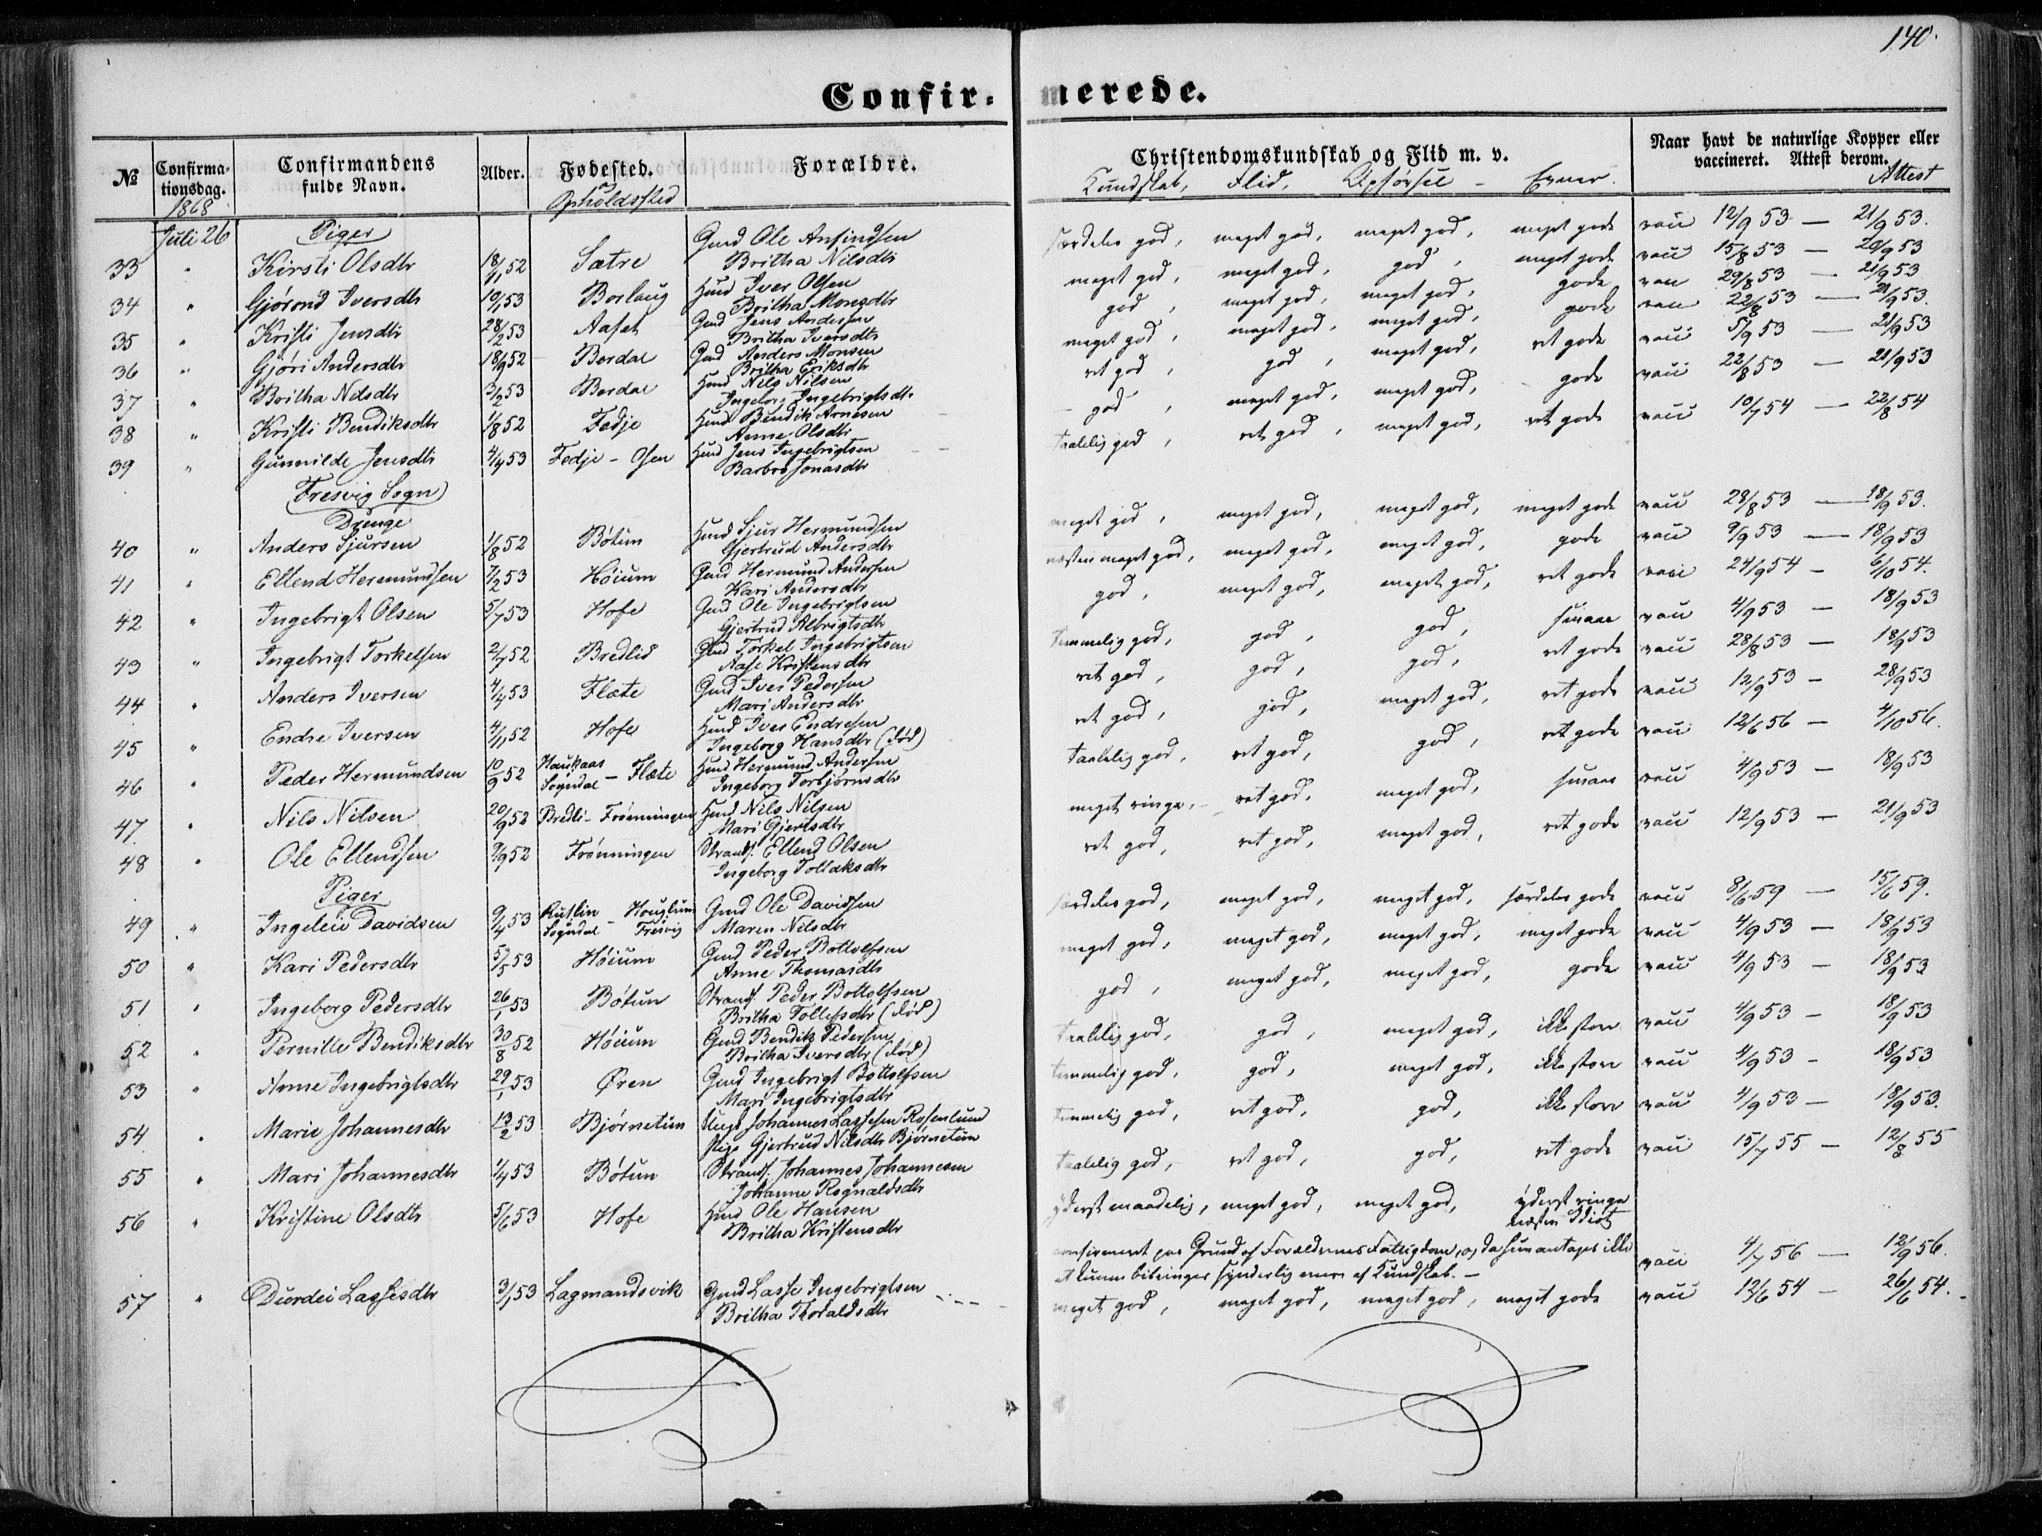 140.
Confirmerede.
№ Confirmationsdag. Confirmandens fulde Navn. Alder. Fødested. Forældre. Christendomskundskab og Flid m. v. Naar havt de naturlige Kopper eller vaccineret. Attest derom.
1868 Opholdssted Kundskab, Flid, Opførsel - Evner. Attest
Juli 26 Piger
33 " Kirsti Olsdtr 18/1 52 Sætre Gmd Ole Ansindsen Britha Nilsdtr særdeles god, meget god, meget god, meget gode vacc 12/9 53 — 21/9 53.
34 " Gjørond Iversdtr 10/1 53 Borlaug Hmd Iver Olsen Britha Monsdtr meget god, meget god, god, meget gode vacc 15/8 53 — 20/9 53
35 " Kristi Jensdtr 28/2 53 Aaset Gmd Jens Andersen Britha Iversdtr god, meget god, meget god, gode vacc 29/8 53 — 21/9 53
36 " Gjøri Andersdtr 18/9 52 Berdal Gmd Anders Monsen Britha Eriksdtr meget god, meget god, meget god, gode vacc 22/8 53 — 21/9 53.
37 " Britha Nilsdtr 3/2 53 Berdal Hmd Nils Nilsen Ingeborg Ingebrigtsdtr ret god, god, meget god, ret gode vacc 5/9 53 — 21/9 53
38 " Kristi Bendiksdtr 1/8 52 Fedje Hmd Bendik Arnesen Anne Olsdtr god, meget god, meget god, gode vacc 22/8 53 — 21/9 53
39 " Gunnilde Jensdtr 4/4 53 Fedje - Osen Hmd Jens Ingebrigtsen Barbro Jonasdtr taalelig god, ret god, meget god, ret gode vacc 10/7 54 — 22/8 54
Fresvig Sogn
Drenge
40 " Anders Sjursen 1/8 52 Bøtun Hmd Sjur Hermundsen Gjertrud Andersdtr meget god, meget god, meget god, meget gode vacc 28/8 53 — 18/9 53.
41 " Ellend Hermundsen 7/2 53 Høium Gmd Hermund Andersen Kari Andersdtr næsten meget god, meget god, meget god, gode vacc 9/9 53 — 18/9 53
42 " Ingebrigt Olsen 5/7 53 Hofe Gmd Ole Ingebrigtsen Gjertrud Albrigtsdtr god, meget god, meget god, ret gode vacc 24/9 54 — 6/10 54.
43 " Ingebrigt Torkelsen 2/7 52 Bredlid Gmd Torkel Ingebrigtsen Aase Kristensdtr temmelig god, god, god, smaae vacc 4/9 53 — 18/9 53
44 " Anders Iversen 4/4 53 Flæte Gmd Iver Pedersen Mari Andersdtr ret god, god, god, ret gode vacc 28/8 53 — 18/9 53
45 " Endre Iversen 4/11 52 Hofe Hmd Iver Endresen Ingeborg Hansdtr (død) ret god, god, meget god, ret gode vacc 12/9 53 — 28/9 53
46 " Peder Hermundsen 10/9 52 Haukaas Sogndal - Flæte Hmd Hermund Andersen Ingeborg Torbjørnsdtr taalelig god, ret god, god, ret gode vacc 12/6 56 — 4/10 56.
47. " Nils Nilsen 20/9 52 Bredli - Frønningen Hmd Nils Nilsen Mari Gjertsdtr meget ringe, ret god, meget god, smaae vacc 4/9 53 — 18/9 53
48 " Ole Ellendsen 9/9 52 Frønningen Strands. Ellend Olsen Ingeborg Tollaksdtr ret god, ret god, meget god, ret gode vacc 12/9 53 — 21/9 53
Piger
49 " Ingeleiv Davidsen 9/4 53 Rutlin Sogndal - Houglum Fresvig Gmd Ole Davidsen Maren Nilsdtr særdeles god, meget god, meget god, særdeles gode vacc 8/6 59 — 15/6 59.
50 " Kari Pedersdtr 5/5 53 Høium Gmd Peder Bottolfsen Anne Thomasdtr meget god, meget god, meget god, meget gode vacc 4/9 53 — 18/9 53
51 " Ingeborg Pedersdtr 26/1 53 Bøtun Strands. Peder Bottolfsen Britha Tollefsdtr (død) god, meget god, meget god, gode vacc 4/9 53 — 18/9 53
52 " Pernille Bendiksdtr 30/8 52 Høium Gmd Bendik Pedersen Britha Iversdtr (død) taalelig god, god, meget god, ikke store vacc 4/9 53 — 18/9 53
53 " Anne Ingebrigtsdtr 29/1 53 Øren Gmd Ingebrigt Bottolfsen Mari Ingebrigtsdtr temmelig god, god, meget god, ikke store vacc 4/9 53 — 18/9 53
54 " Marie Johannesdtr 13/2 53 Bjørnetun Ungk Johannes Lassesen Rosenlund Pige Gjertrud Nilsdtr Bjørnetun temmelig god, ret god, god, ikke store vacc 4/9 53 — 18/9 53.
55 " Mari Johannesdtr 1/4 53 Bøtun Strands. Johannes Johannesen Johanne Rognaldsdtr taalelig god, ret god, god, ret gode vacc 15/7 55 — 12/8 55
56 " Kristine Olsdtr 5/6 53 Hofe Hmd Ole Hansen Britha Kristensdtr yderst maadelig, meget god, meget god, yderst ringe næsten Idiot
confirmeret paa Grund af Forældrenes Fattigdom, og da hun antages ikke at kunne bibringes synderlig mere af Kundskab. — vacc 4/7 56 — 12/9 56.
57 " Durdei Lassesdtr 3/1 53 Lagmandsvik Gmd Lasse Ingebrigtsen Britha Thoraldsdtr meget god, meget god, meget god, meget gode vacc 13/6 54 — 26/6 54.